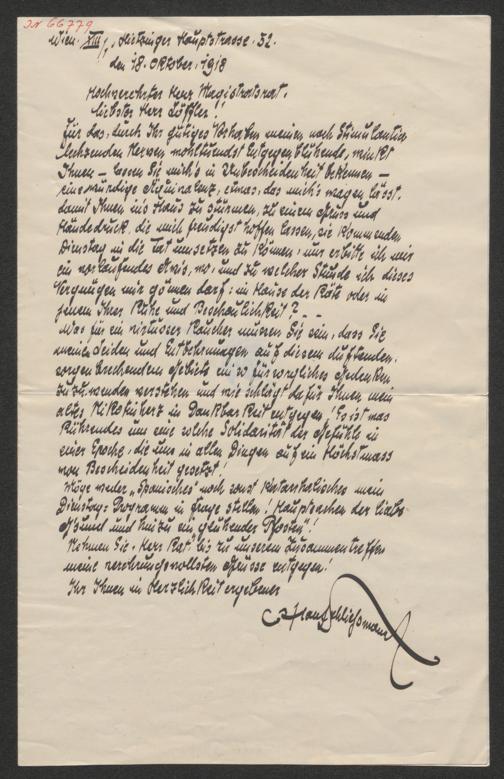 JN 66779
Wien. XIII/1, Hietzinger Hauptstrasse. 32.
den 18. Oktober. 1918
Hochverehrter Herr Magistratsrat.
liebster Herr Löffler!
Für das, durch Ihr gütiges Vorhaben meinen nach Stimulantien
lechzenden Nerven wohltuendst Entgegenblühende, winkt
Ihnen – lassen Sie mich's in Unbescheidenheit bekennen –
eine würdige Äquivalenz, etwas, das mich's wagen lässt.
damit Ihnen ins Haus zu stürmen, zu einem Gruss und
Händedruck, die mich freudigst hoffen lassen, sie kommenden
Dienstag in die Tat umsetzen zu können, nur erbitte ich mir
ein verlaufendes etwas, wo, und zu welcher Stunde ich dieses
Vergnügen mir gönnen darf: im Hause der Räte oder in
jenem Ihrer Ruhe und Beschaulichkeit? – –
Was für ein virtuoser Raucher müssen Sie sein, dass Sie
meine Leiden und Entbehrungen auf diesem duftenden,
sorgenbrechendem Gebiete ein so fürsorgliches Gedenken
zuzuwenden verstehen und wie schlägt dafür Ihnen mein
altes Nikotinherz in Dankbarkeit entgegen! Es ist was
Rührendes um eine solche Solidarität der Gefühle in
einer Epoche, die uns in allen Dingen auf ein Höchstmass
von Bescheidenheit gesetzt!
Möge weder „Spanisches" noch sonst Katarrhalisches mein
Dienstag-Programm in Frage stellen! Hauptsachen der liebe
Gsund und hinzu ein glühender Pfosten"!
Nehmen Sie „Herr Rat" bis zu unserem Zusammentreffen
meine verehrungsvollsten Grüsse entgegen!
Ihr Ihnen in Herzlichkeit ergebener
Hans Schließmann